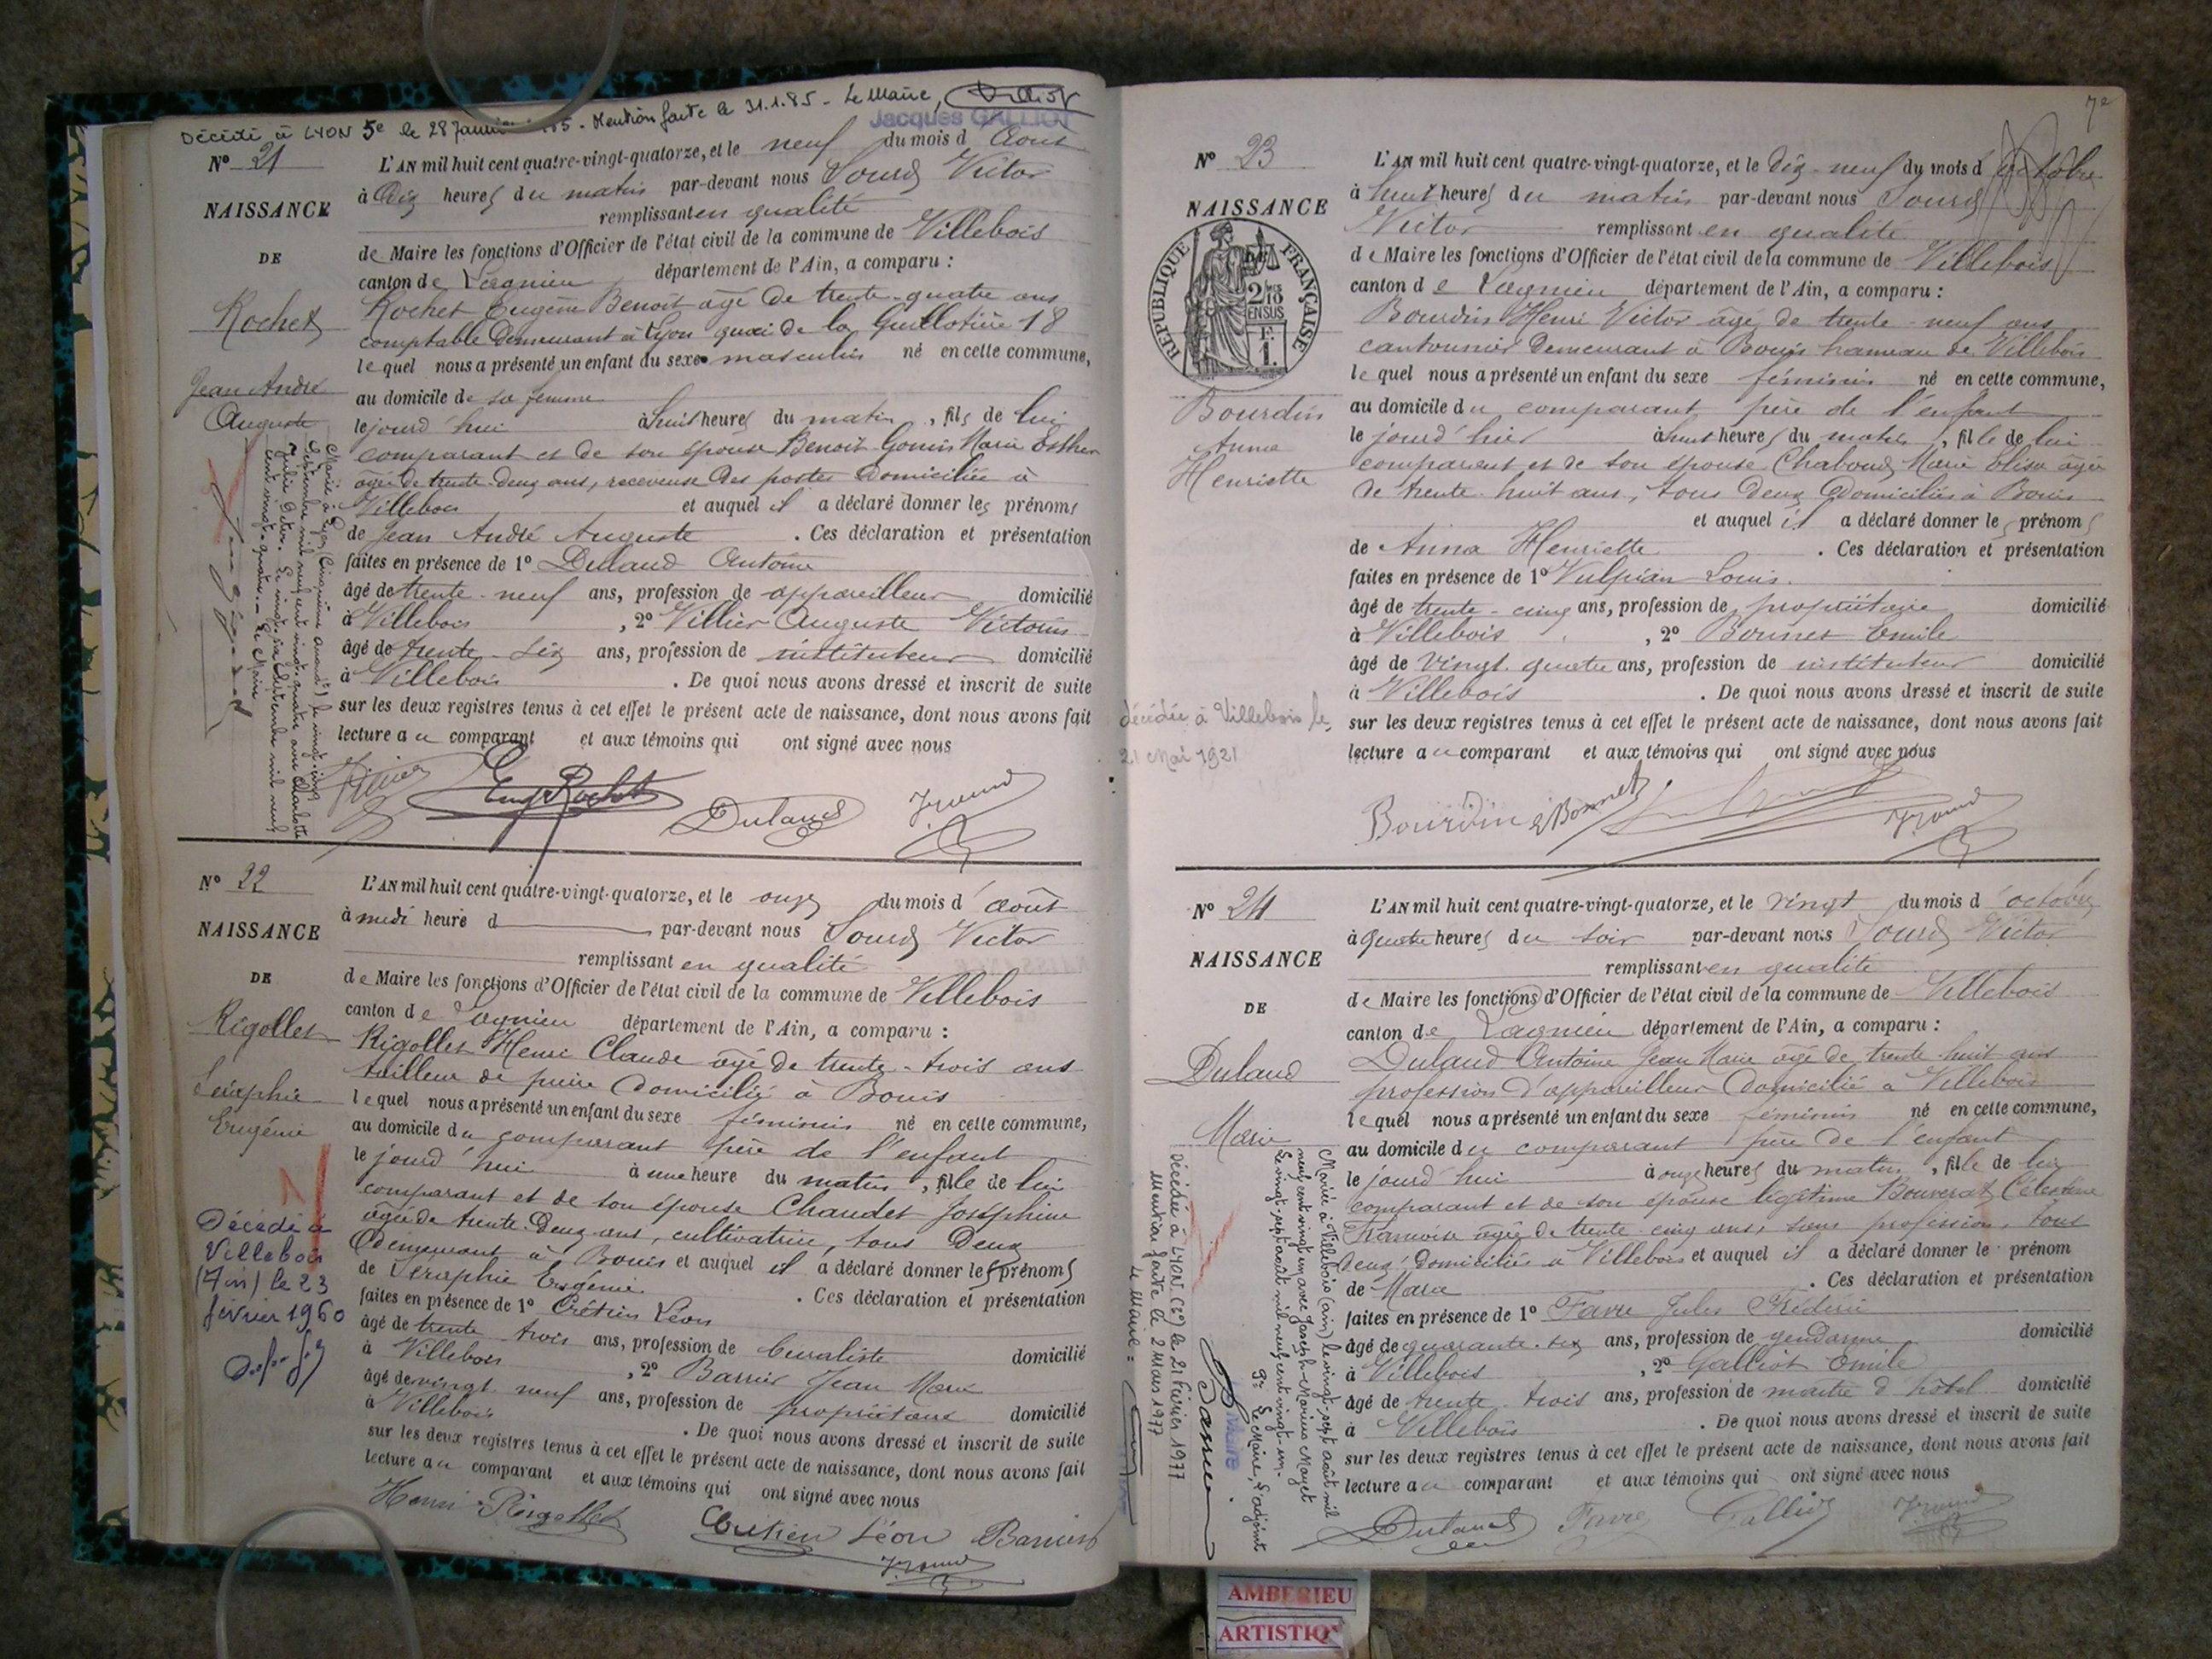 Décédé à LYON 5e le 28 Janvier - Mention faite le 31.1.85 - Le Maire,
Jacques GALLIOT
N° 21
NAISSANCE
DE
Rochet
Jean André
Auguste
L'AN mil huit cent quatre-vingt-quatorze, et le neuf du mois d Août
à Dix heures du matin par-devant nous Sourd Victor
remplissant en qualité
de Maire les fonctions d'Officier de l'état civil de la commune de Villebois
canton de Lagnieu département de l'Ain, a comparu :
Rochet Eugène Benoit âgé de trente-quatre ans
comptable demeurant à Lyon quai de la Guillotière 18
lequel nous a présenté un enfant du sexe masculin né en cette commune,
au domicile de sa femme
le jourd'hui à huit heures du matin, fils de lui
comparant et de son épouse Benoit-Gonin Marie Esther
âgée de trente-deux ans, receveuse des postes domiciliée à
Villebois et auquel il a déclaré donner les prénoms
de Jean André Auguste. Ces déclaration et présentation
faites en présence de 1° Dulaud Antoine
âgé de trente-neuf ans, profession de appareilleur domicilié
à Villebois, 2° Villier Auguste Victorin
âgé de trente-six ans, profession de instituteur domicilié
à Villebois. De quoi nous avons dressé et inscrit de suite
sur les deux registres tenus à cet effet le présent acte de naissance, dont nous avons fait
lecture au comparant et aux témoins qui ont signé avec nous
Eug Rochet
Dulaud
N° 22
NAISSANCE
DE
Rigollet
Séraphie
Eugénie
Décédé à
Villebois
(Ain) le 23
février 1960
L'AN mil huit cent quatre-vingt-quatorze, et le onze du mois d'août
à midi heure d par-devant nous Sourd Victor
remplissant en qualité
de Maire les fonctions d'Officier de l'état civil de la commune de Villebois
canton de Lagnieu département de l'Ain, a comparu :
Rigollet Henri Claude âgé de trente-trois ans
tailleur de pierre domicilié à Bouis
lequel nous a présenté un enfant du sexe féminin né en cette commune,
au domicile du comparant père de l'enfant
le jourd'hui à une heure du matin, fille de lui
comparant et de son épouse Chaudet Joséphine
âgée de trente-deux ans, cultivatrice, tous deux
demeurant à Bouis et auquel il a déclaré donner les prénoms
de Séraphie Eugénie. Ces déclaration et présentation
faites en présence de 1° Crétien Léon
âgé de trente trois ans, profession de buraliste domicilié
à Villebois, 2° Barrier Jean Marie
âgé de vingt neuf ans, profession de propriétaire domicilié
à Villebois. De quoi nous avons dressé et inscrit de suite
sur les deux registres tenus à cet effet le présent acte de naissance, dont nous avons fait
lecture au comparant et aux témoins qui ont signé avec nous
Henri Rigollet
Crétien Léon Barrier
7e
N° 23
NAISSANCE
RÉPUBLIQUE FRANÇAISE
2/10 EN SUS
Bourdin
Anna
Henriette
décédée à Villebois le
21 Mai 1921
L'AN mil huit cent quatre-vingt-quatorze, et le dix-neuf du mois d'octobre
à huit heures du matin par-devant nous Sourd
Victor remplissant en qualité
de Maire les fonctions d'Officier de l'état civil de la commune de Villebois
canton de Lagnieu département de l'Ain, a comparu :
Bourdin Henri Victor âgé de trente-neuf ans
cantonnier demeurant à Bouis hameau de Villebois
lequel nous a présenté un enfant du sexe féminin né en cette commune,
au domicile du comparant père de l'enfant
le jourd'hier à huit heures du matin, fille de lui
comparant et de son épouse Chaboud Marie Elisa âgée
de trente-huit ans, tous deux domiciliés à Bouis
et auquel il a déclaré donner les prénoms
de Anna Henriette. Ces déclaration et présentation
faites en présence de 1° Vulpian Louis
âgé de trente-cinq ans, profession de propriétaire domicilié
à Villebois, 2° Bonnet Emile
âgé de vingt quatre ans, profession de instituteur domicilié
à Villebois. De quoi nous avons dressé et inscrit de suite
sur les deux registres tenus à cet effet le présent acte de naissance, dont nous avons fait
lecture au comparant et aux témoins qui ont signé avec nous
Bourdin E Bonnet
N° 24
NAISSANCE
DE
Dulaud
Marie
Mariée à Villebois (ain) le vingt-sept août mil
neuf cent vingt un avec Joseph-Marius Mayet
Le vingt-sept août mil neuf cent vingt-un.
Pr. Le Maire, L'adjoint
Décédée à LYON (2e) le 21 février 1977
Mention faite le 2 Mars 1977
Le Maire :
L'AN mil huit cent quatre-vingt-quatorze, et le vingt du mois d'octobre
à quatre heures du soir par-devant nous Sourd Victor
remplissant en qualité
de Maire les fonctions d'Officier de l'état civil de la commune de Villebois
canton de Lagnieu département de l'Ain, a comparu :
Dulaud Antoine Jean Marie âgé de trente-huit ans
profession d'appareilleur domicilié à Villebois
lequel nous a présenté un enfant du sexe féminin né en cette commune,
au domicile du comparant père de l'enfant
le jourd'hui à onze heures du matin, fille de lui
comparant et de son épouse légitime Bouverat Célestine
Françoise âgée de trente-cinq ans, sans profession, tous
deux domiciliés à Villebois et auquel il a déclaré donner le prénom
de Marie. Ces déclaration et présentation
faites en présence de 1° Favre Jules Frédéric
âgé de quarante-six ans, profession de gendarme domicilié
à Villebois, 2° Galliot Emile
âgé de trente-trois ans, profession de maître d'hôtel domicilié
à Villebois. De quoi nous avons dressé et inscrit de suite
sur les deux registres tenus à cet effet le présent acte de naissance, dont nous avons fait
lecture au comparant et aux témoins qui ont signé avec nous
Dulaud Favre Galliot
AMBERIEU
ARTISTIQ